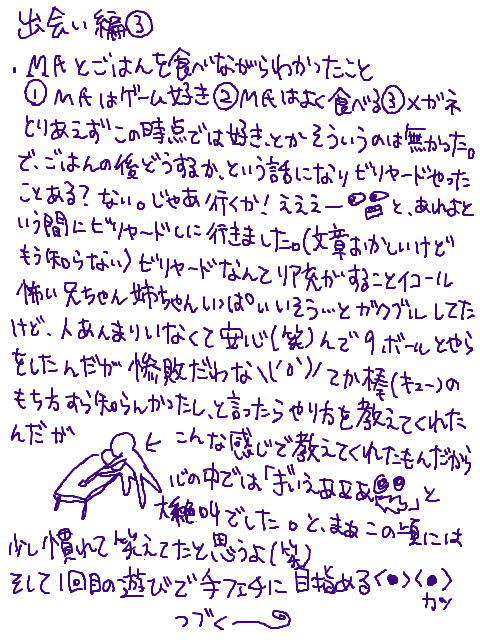 出会い編③
・M氏とごはんを食べながらわかったこと
①M氏はゲーム好き②M氏はよく食べる③メガネ
とりあえずこの時点では好き、とかそういうのは無かった。
で、ごはんの後どうするか、という話になりビリヤードやった
ことある?ない。じゃあ行くか!えええーと、あれよと
いう間にビリヤードしに行きました。(文章おかしいけど
もう知らない)ビリヤードなんてリア充がすることイコール
怖い兄ちゃん姉ちゃんいっぱいいそう…とガクブルしてた
けど、人あんまりいなくて安心(笑)んで9ボールとやら
をしたんだが惨敗だわな\('o')/てか棒(キュー)の
もち方すら知らんかったし、と言ったらやり方を教えてくれた
んだが ← こんな感じで教えてくれたもんだから
心の中では「ぎいえぁぁぁぁ」と
大絶叫でした。と、まぁこの頃には
少し慣れて笑えてたと思うよ(笑)
そして1回目の遊びで手フェチに目指める<●><●>
カッ
つづくー